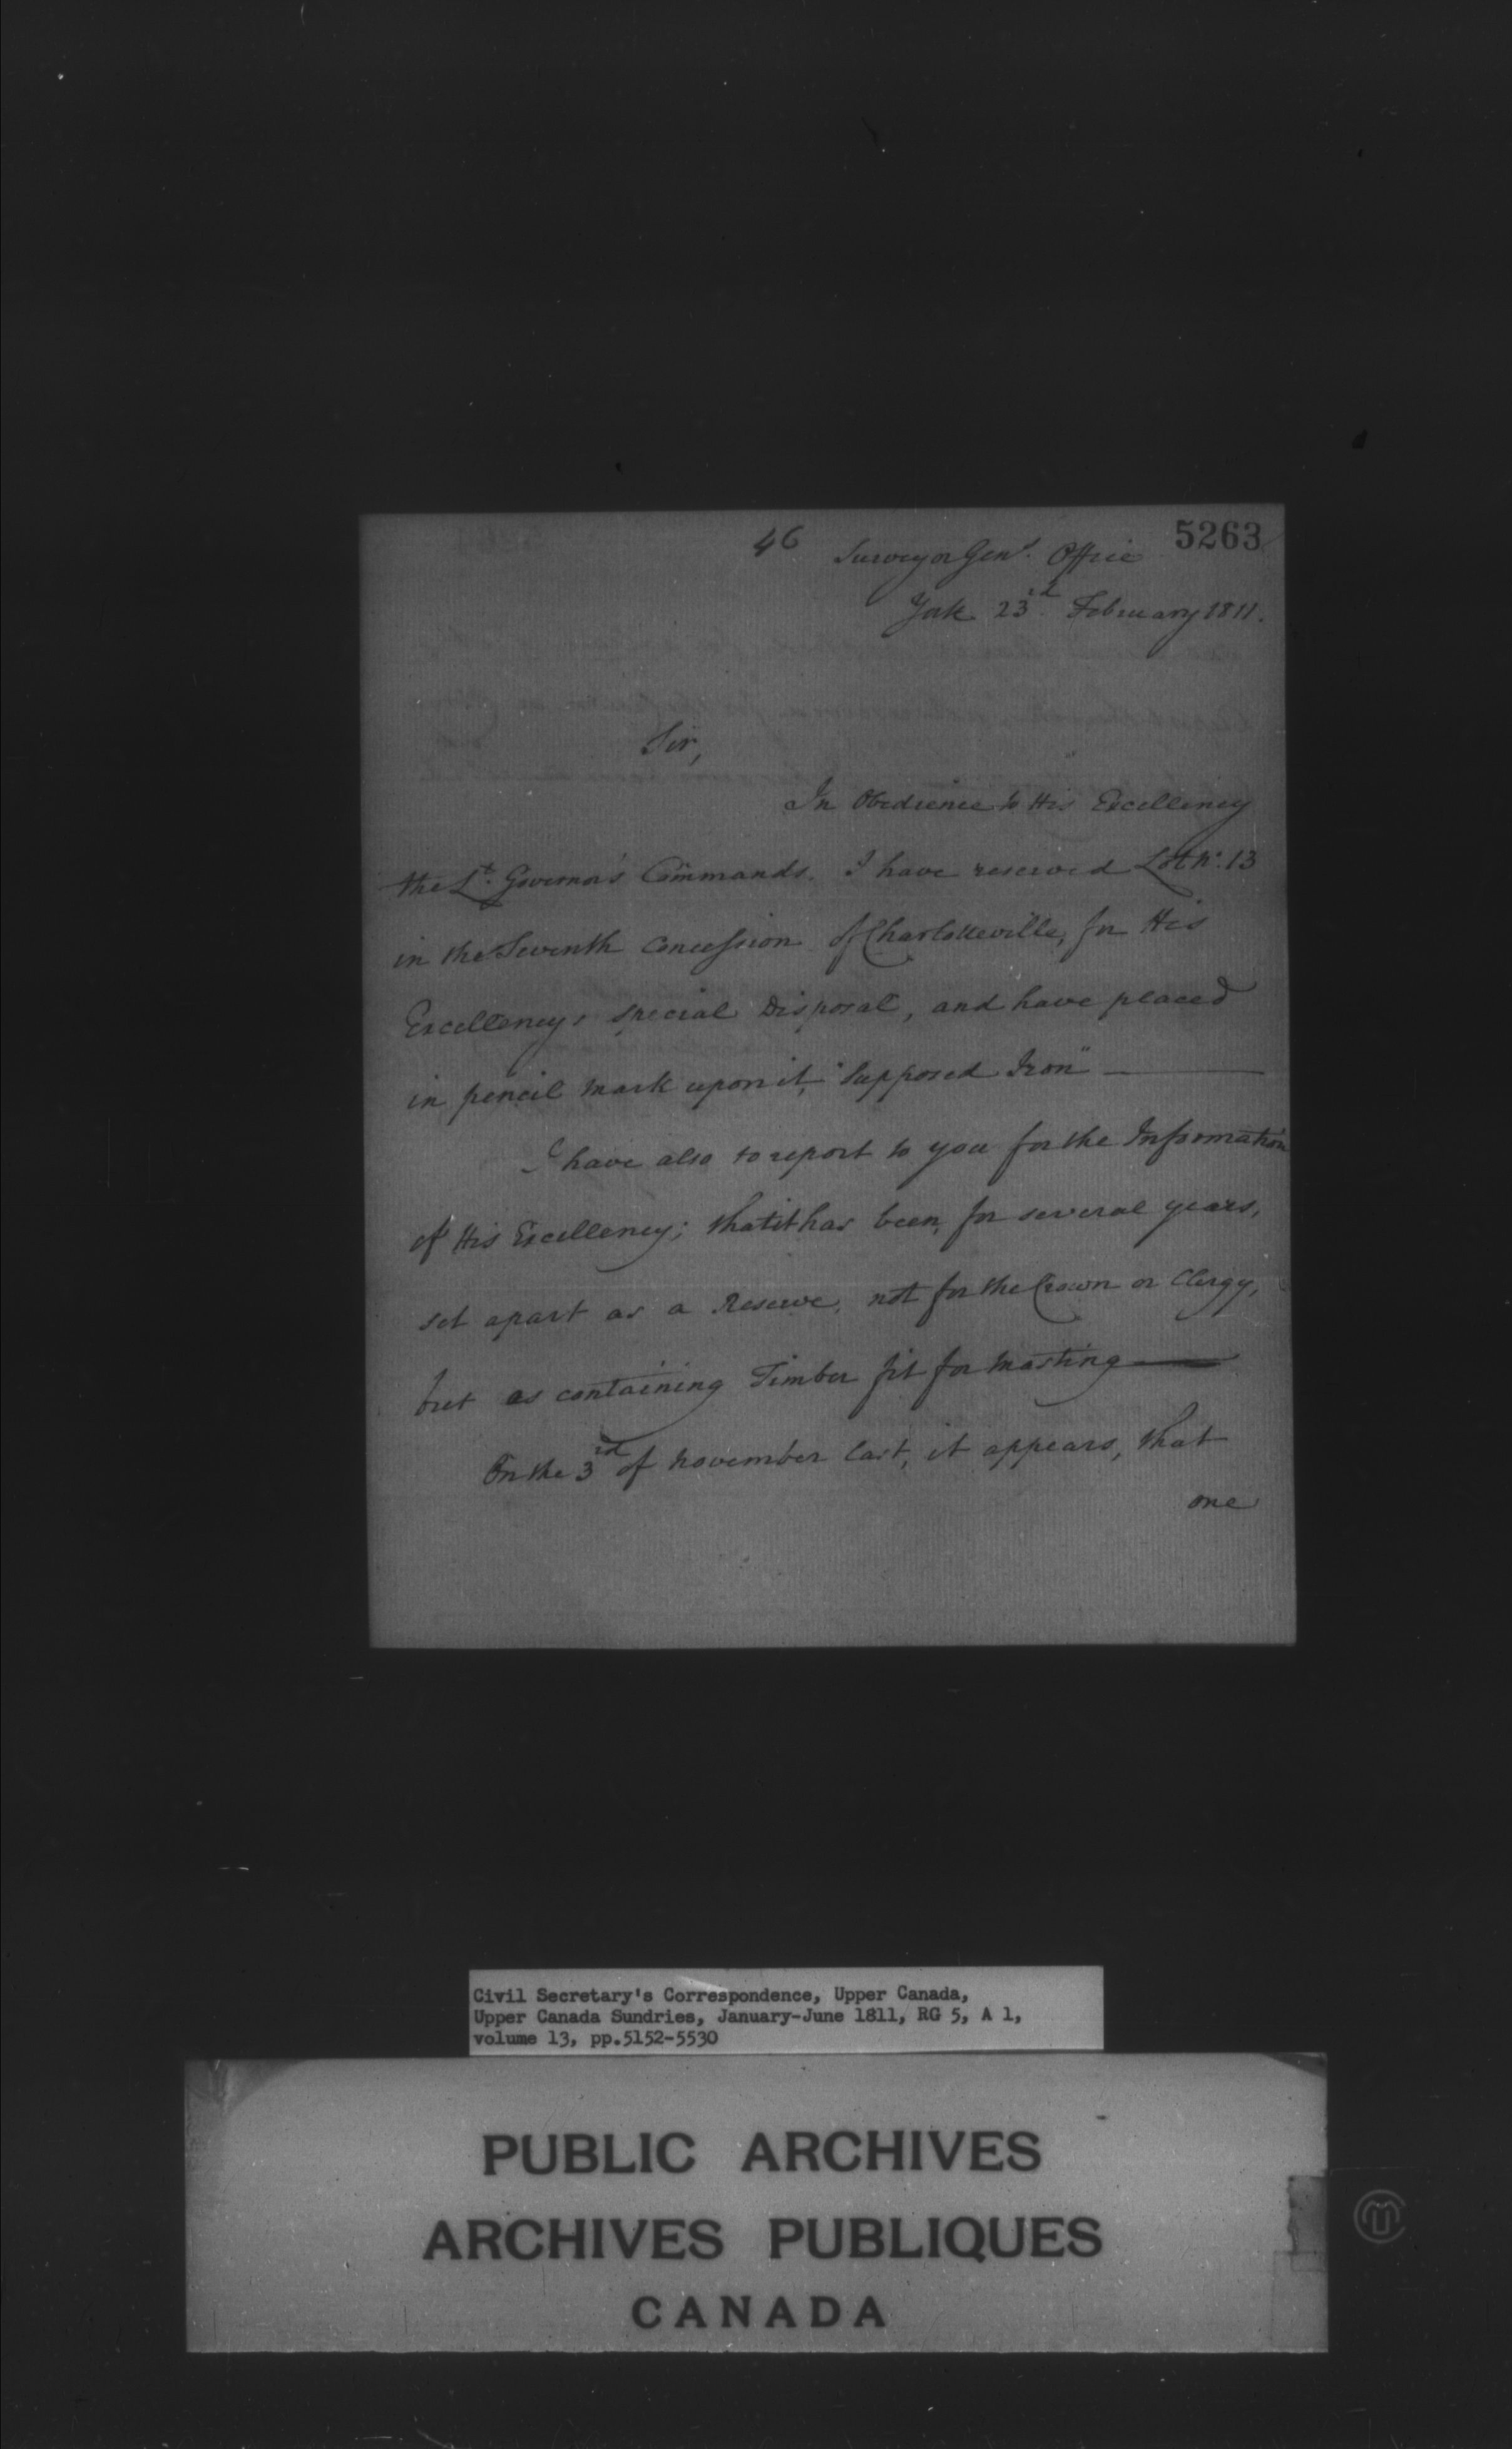 46
5263
Surveyor Genls. Office
York 23rd. February 1811.
Sir,
In Obedience to His Excellency
the Lt. Governor's Commands. I have reserved Lot No. 13
in the Seventh Concession of Charlotteville, for His
Excellency's special Disposal, and have placed
in pencil mark upon it, "Supposed Iron"
I have also to report to you for the Information
of His Excellency; that it has been, for several years,
set apart as a Reserve, not for the Crown or Clergy,
but as containing Timber fit for Masting
On the 3rd of November last, it appears, that
one
Civil Secretary's Correspondence, Upper Canada,
Upper Canada Sundries, January-June 1811, RG 5, A 1,
volume 13, pp.5152-5530
PUBLIC ARCHIVES
ARCHIVES PUBLIQUES
CANADA